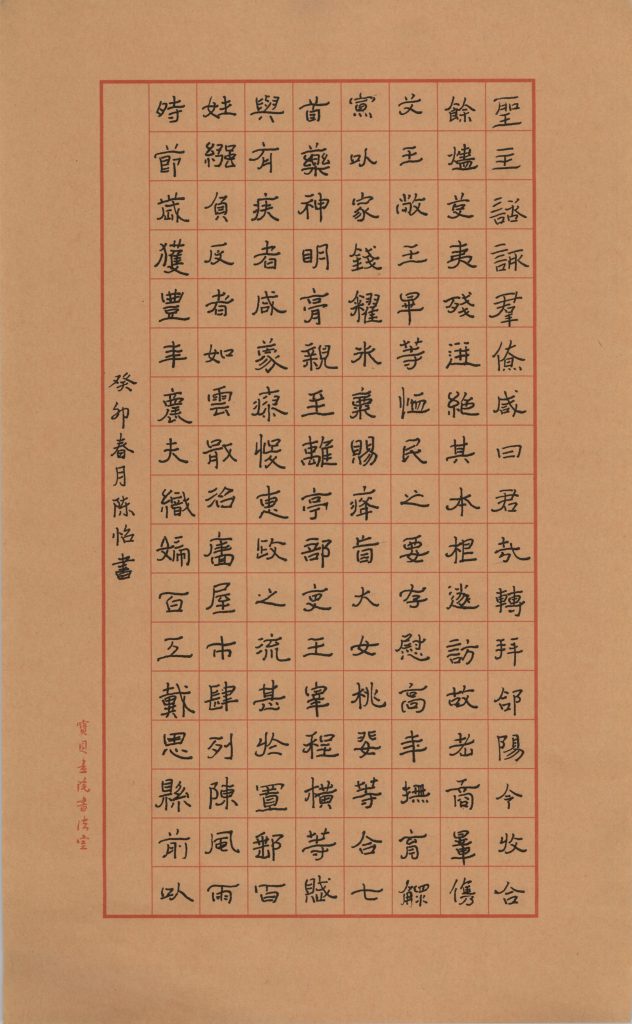 聖主諮諏羣僚咸曰君哉轉拜郃陽令收合
餘燼芟夷殘迸絕其本根遂訪故老商量儁
艾王敞王畢等恤民之要存慰高年撫育鰥
寡以家錢糴米粟賜癃盲大女桃婓等合七
首藥神明膏親至離亭部吏王宰程橫等賦
與有疾者咸蒙瘳悛惠政之流甚於置郵百
姓繈負反者如雲戢治廧屋市肆列陳風雨
時節歲獲豐年農夫織婦百工戴恩縣前以
癸卯春月陈怡書
寶貝畫院書法室